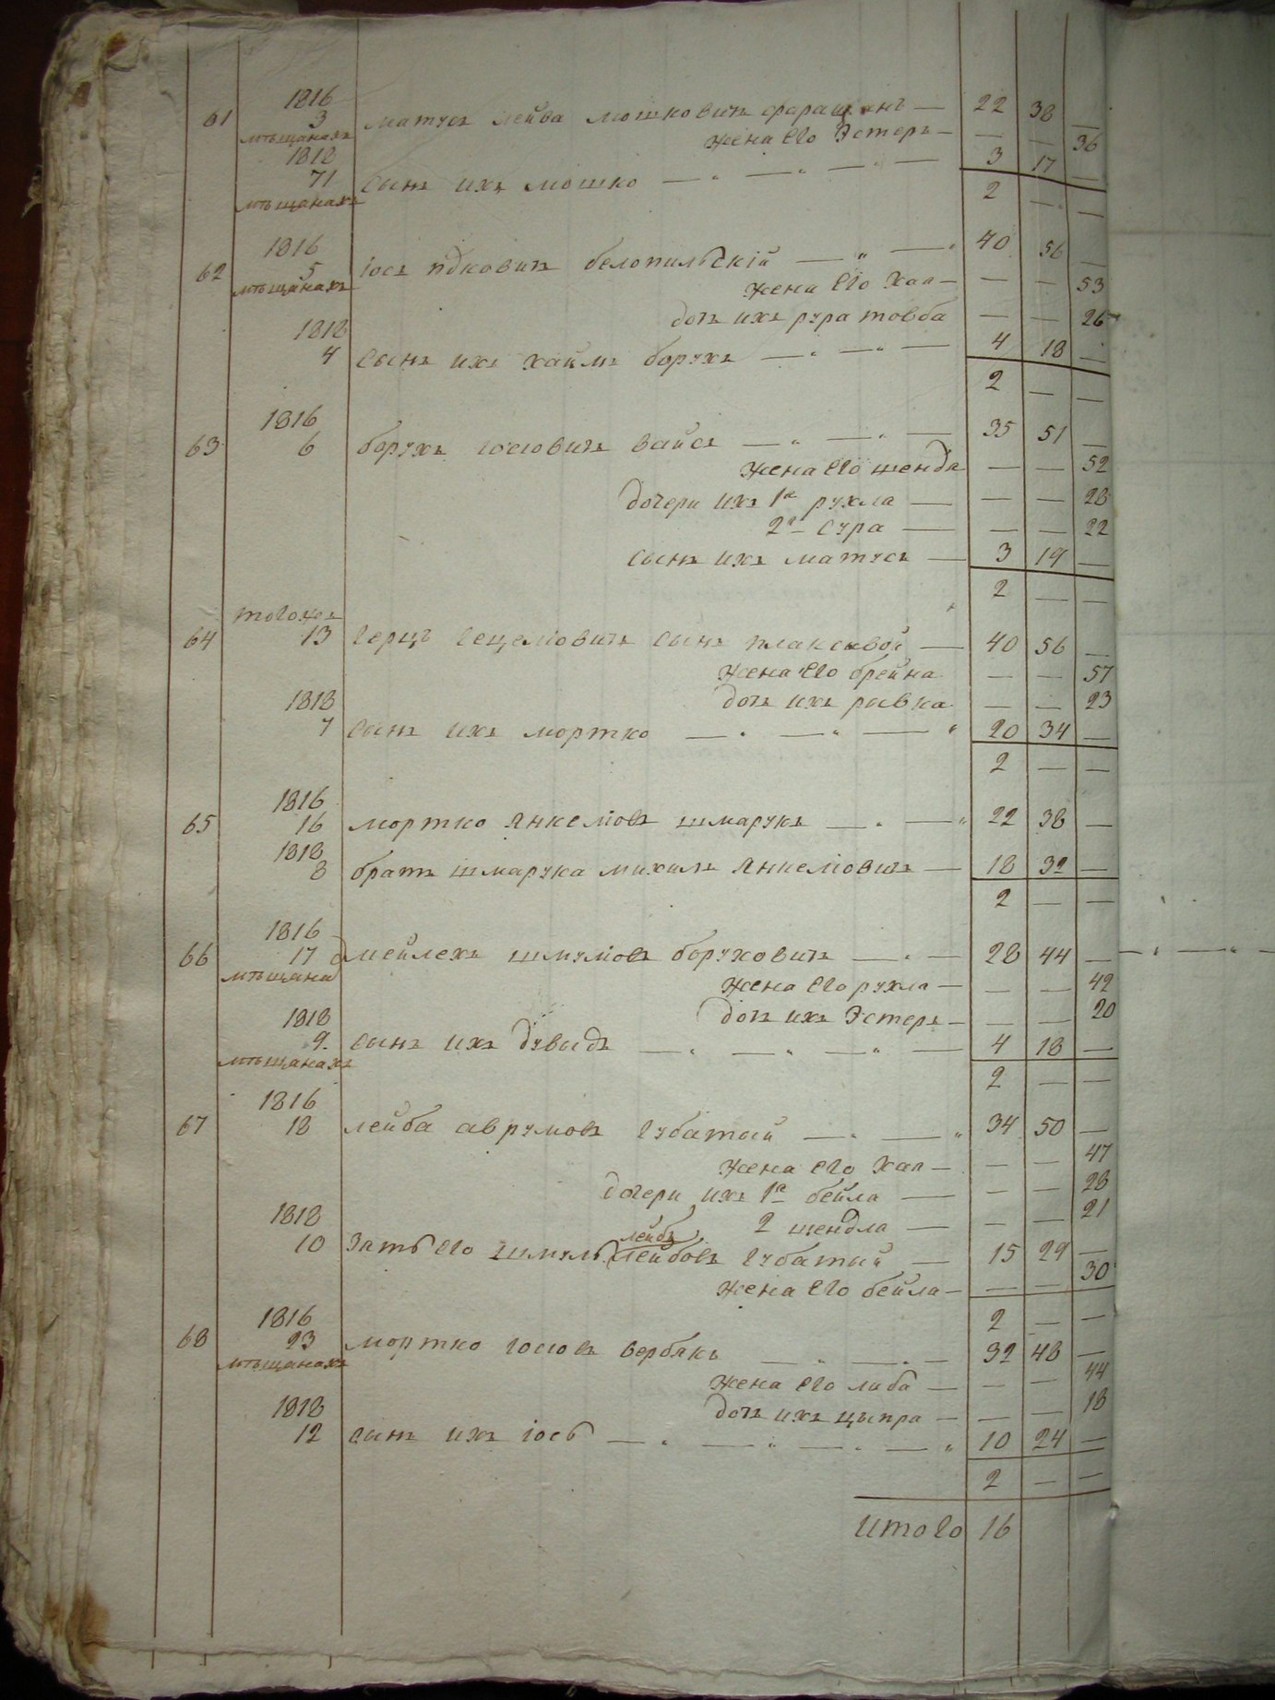 1816
61 3 матусь лейба мошковичъ — 22 38 —
мѣщанахъ жена его Эстеръ — — — 36
1818 3 17 —
71 сынъ ихъ мошко — — —
мѣщанахъ 2 — —
1816
62 5 белопильскій — — 40 56 —
мѣщанахъ жена его Хая — — — 53
дочь ихъ товба — — 26
1818
4 сынъ ихъ хаимъ борухъ — — — 4 18 —
2 — —
1816
63 6 борухъ іосіовичъ вайсъ — — — 35 51 —
жена его шендля — — 52
дочери ихъ 1я рухла — — — 28
2я сура — — — 22
сынъ ихъ матусь — 3 19 —
2 — —
тогожъ
64 13 герцъ сынъ плаксивой — 40 56 —
жена его брейна — — 57
1818 дочь ихъ ривка — — 23
7 сынъ ихъ мортко — — — 20 34 —
2 — —
1816
65 16 мортко янкеліовъ шмарукъ — — 22 38 —
1818
8 братъ шмарука михиль янкеліовичъ — 18 32 —
2 — —
1816
66 17 шмуліовъ боруховичъ — — 28 44 —
мѣщана жена его рухля — — — 42
1818 дочь ихъ Эстеръ — — — 20
9 сынъ ихъ дувидъ — — — — 4 18 —
мѣщанахъ
2 — —
1816
67 18 лейба аврумовъ губатый — — 34 50 —
жена его Хая — — — 47
дочери ихъ 1я бейла — — — 28
1818 2 шендла — — — 21
лейбъ
10 зять его шмуль лейбовъ губатый — 15 29 —
жена его бейла — — — 30
1816 2 — —
68 23 мортко іосіовъ вербякъ — — — 32 48 —
мѣщанахъ
жена его либа — — — 44
1818 дочь ихъ ципра — — — 18
12 сынъ ихъ іось — — — — 10 24 —
2 — —
итого 16